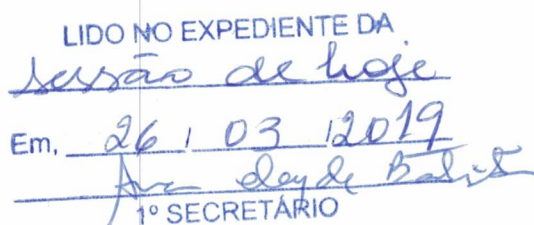 LIDO NO EXPEDIENTE DA
sessão de hoje
Em, 26 / 03 /2019
Ana
1º SECRETÁRIO